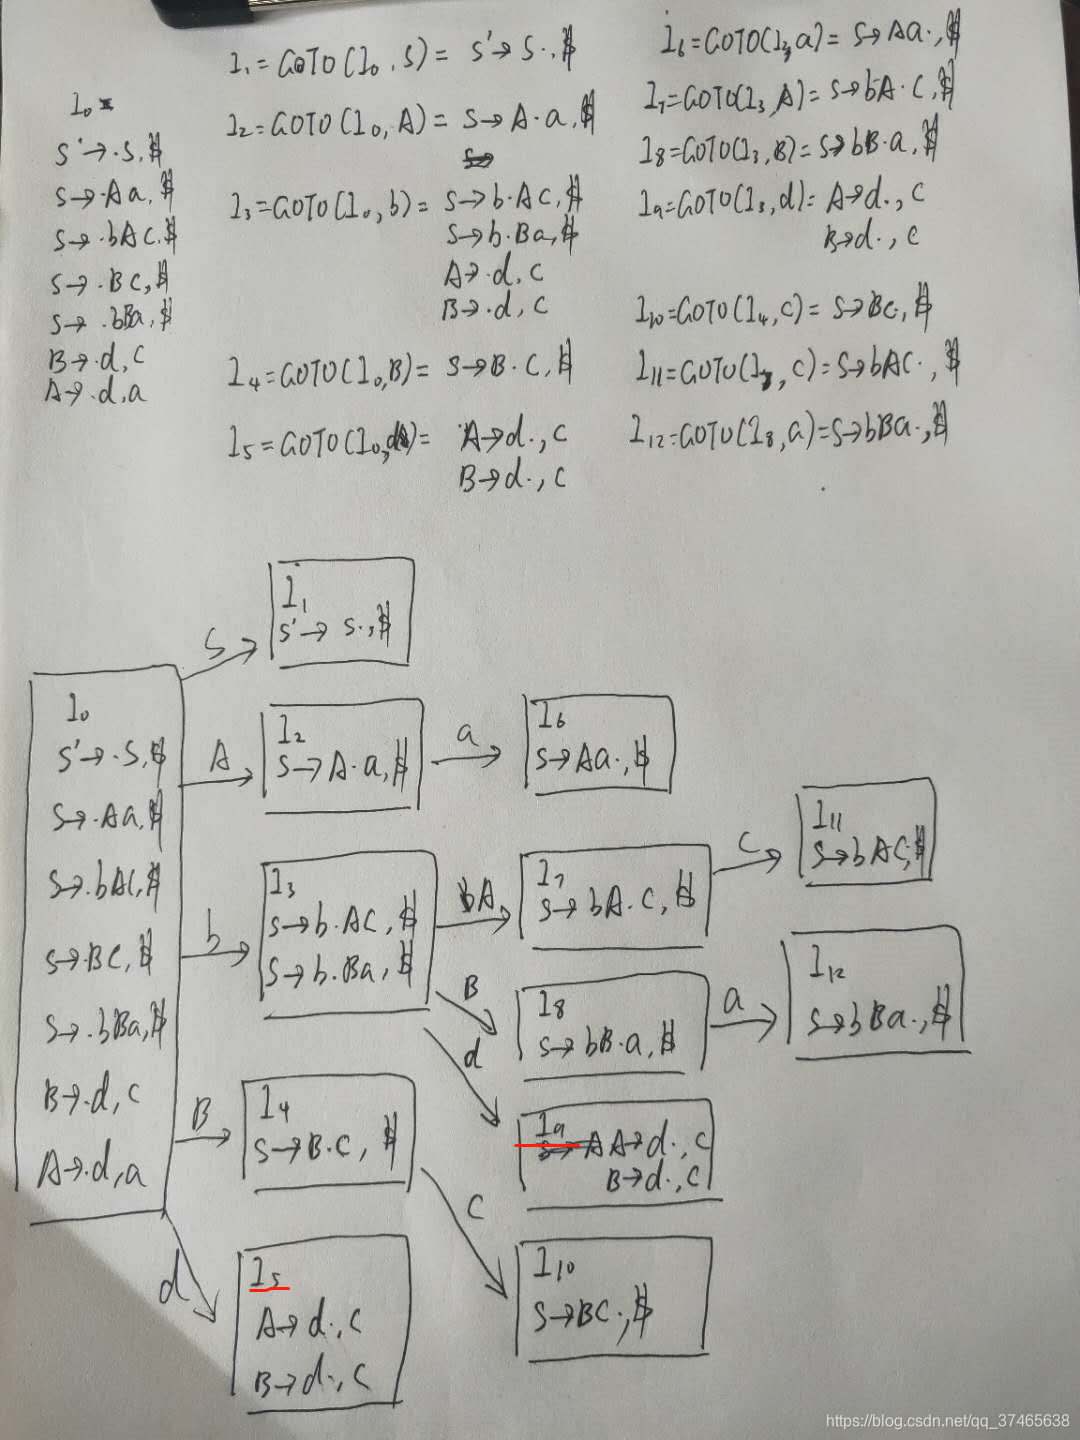 I₀
S'→·S,$
S→·Aa,$
S→·bAc,$
S→·Bc,$
S→·bBa,$
B→·d,c
A→·d,a
I₁=GOTO(I₀,S)= S'→S·,$
I₂=GOTO(I₀,A)= S→A·a,$
I₃=GOTO(I₀,b)= S→b·Ac,$
S→b·Ba,$
A→·d,c
B→·d,c
I₄=GOTO(I₀,B)= S→B·c,$
I₅=GOTO(I₀,d)= A→d·,c
B→d·,c
I₆=GOTO(I₂,a)= S→Aa·,$
I₇=GOTO(I₃,A)= S→bA·c,$
I₈=GOTO(I₃,B)= S→bB·a,$
I₉=GOTO(I₃,d)= A→d·,c
B→d·,c
I₁₀=GOTO(I₄,c)= S→Bc·,$
I₁₁=GOTO(I₇,c)=S→bAc·,$
I₁₂=GOTO(I₈,a)=S→bBa·,$
I₀
S'→·S,$
S→·Aa,$
S→·bAc,$
S→·Bc,$
S→·bBa,$
B→·d,c
A→·d,a
S
I₁
S'→S·,$
A
I₂
S→A·a,$
a
I₆
S→Aa·,$
b
I₃
S→b·Ac,$
S→b·Ba,$
A
I₇
S→bA·c,$
c
I₁₁
S→bAc·,$
B
I₈
S→bB·a,$
a
I₁₂
S→bBa·,$
d
I₉
A→d·,c
B→d·,c
B
I₄
S→B·c,$
c
I₁₀
S→Bc·,$
d
I₅
A→d·,c
B→d·,c
https://blog.csdn.net/qq_37465638